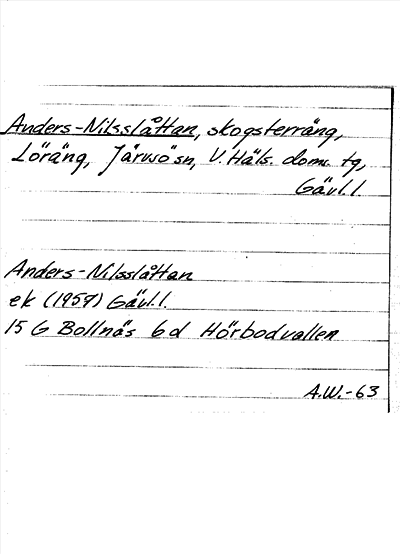 Anders-Nilsslåttan, skogsterräng,
Löräng, Järvsö sn, V. Häls. doms. tg,
Gävl. l.
Anders-Nilsslåttan
ek (1957) Gävl. l.
15 G Bollnäs 6d Hörbodvallen
A.W.-63